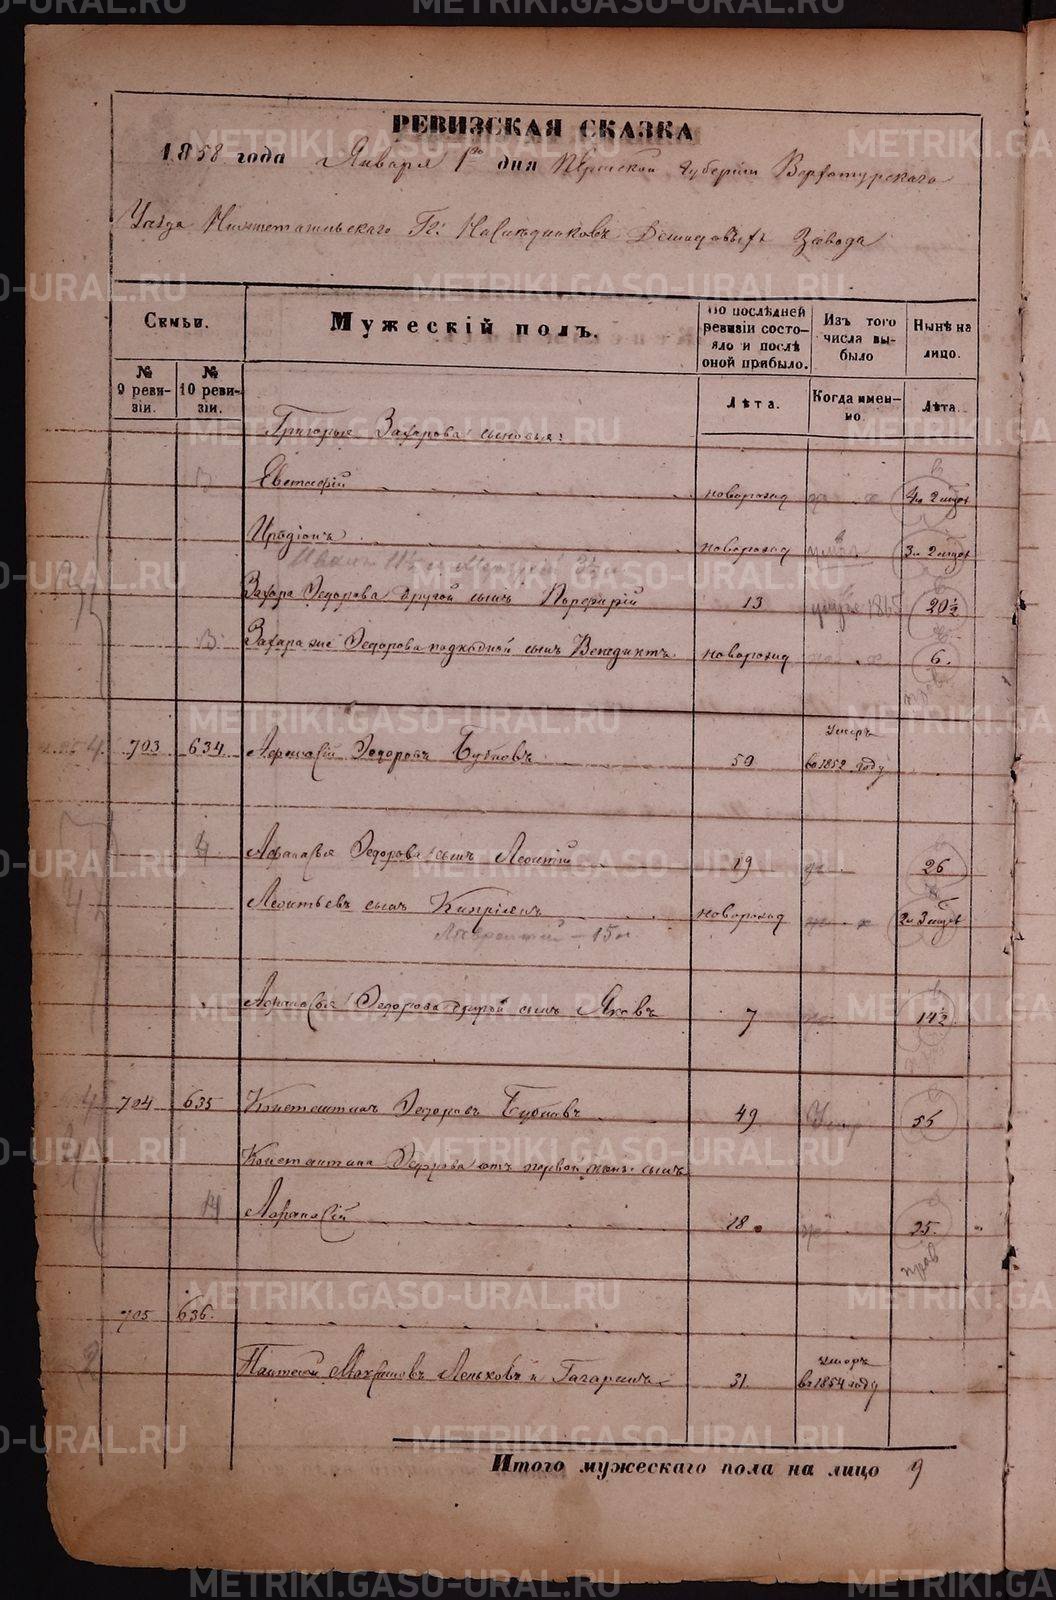 РЕВИЗСКАЯ СКАЗКА
1858 года Января 1го дня Пермской Губернiи Верхотурскаго
Уѣзда Нижнетагильскаго Гг: Наслѣдниковъ Демидовыхъ Завода
Семьи.
Мужескiй полъ.
По послѣдней ревизiи состояло и послѣ оной прибыло.
Изъ того числа выбыло
Нынѣ на лицо.
№ 9 ревизiи.
№ 10 ревизiи.
Лѣта.
Когда именно.
Лѣта.
Григорья Захарова сыновья:
Евстафiй новорожд 4м 2 мцов
Иродiонъ новорожд 3м 2 мцов
Захара Федорова другой сынъ Порфирiй 13 1865 20½
Захара же Федорова подкидной сынъ Венедиктъ новорожд 6.
703 634 Афанасiй Федоровъ Бубновъ 50 умеръ въ 1852 году
Афанасья Федорова сынъ Леонтiй 19 26
Леонтьевъ сынъ Кипрiянъ новорожд 2м 3 мцов
Лаврентiй - 15м
Афанасья Федорова другой сынъ Яковъ 7 14½
704 635 Константинъ Федоровъ Бубновъ 49 56
Константина Федорова отъ первой жены сынъ
Афанасiй 18 25.
705 636.
Пантелей Махсимовъ Леньковъ и Гагаринъ 31. умеръ въ 1854 году
Итого мужескаго пола на лицо 9
METRIKI.GASO-URAL.RU